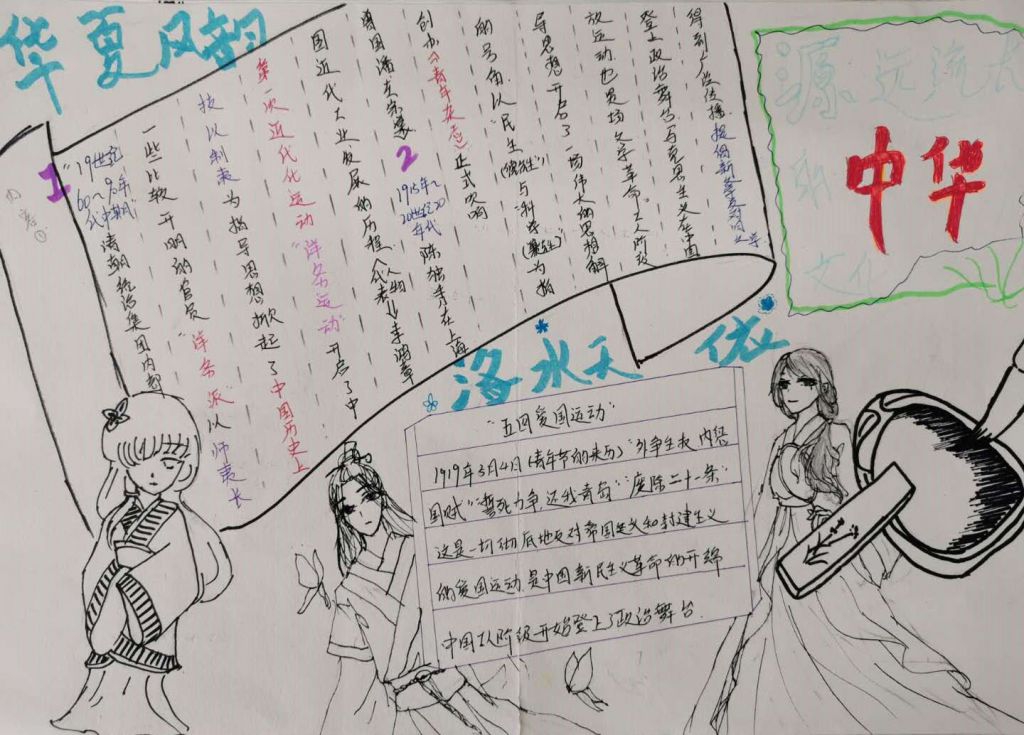 华夏风韵
内容①
1
"19世纪
60~90年
代中期"
清朝统治集团内部
一些比较开明的官员"洋务派"以师夷长
技以制夷为指导思想掀起了中国历史上
第一次近代化运动"洋务运动"开启了中
国近代工业发展的历程(代表人物)→李鸿章
曾国潘左宗棠
2
1915年~
20世纪20
年代
陈独秀在上海
创办《青年杂志》正式吹响
的号角.以"民主(德先生)"与"科学(赛先生)"为指
导思想开启了一场伟大的思想解
放运动也是场文学革命.工人阶级
登上政治舞台马克思主义在中国
得到广泛传播.提倡新
源远流长
中华
文化
洛水天依
"五四爱国运动"
1919年5月4日(青年节的来历)"外争主权 内惩
国贼""誓死力争 还我青岛""废除二十一条"
这是一切彻底地反对帝国主义和封建主义
的爱国运动.是中国新民主义革命的开端
中国工人阶级开始登上了政治舞台.